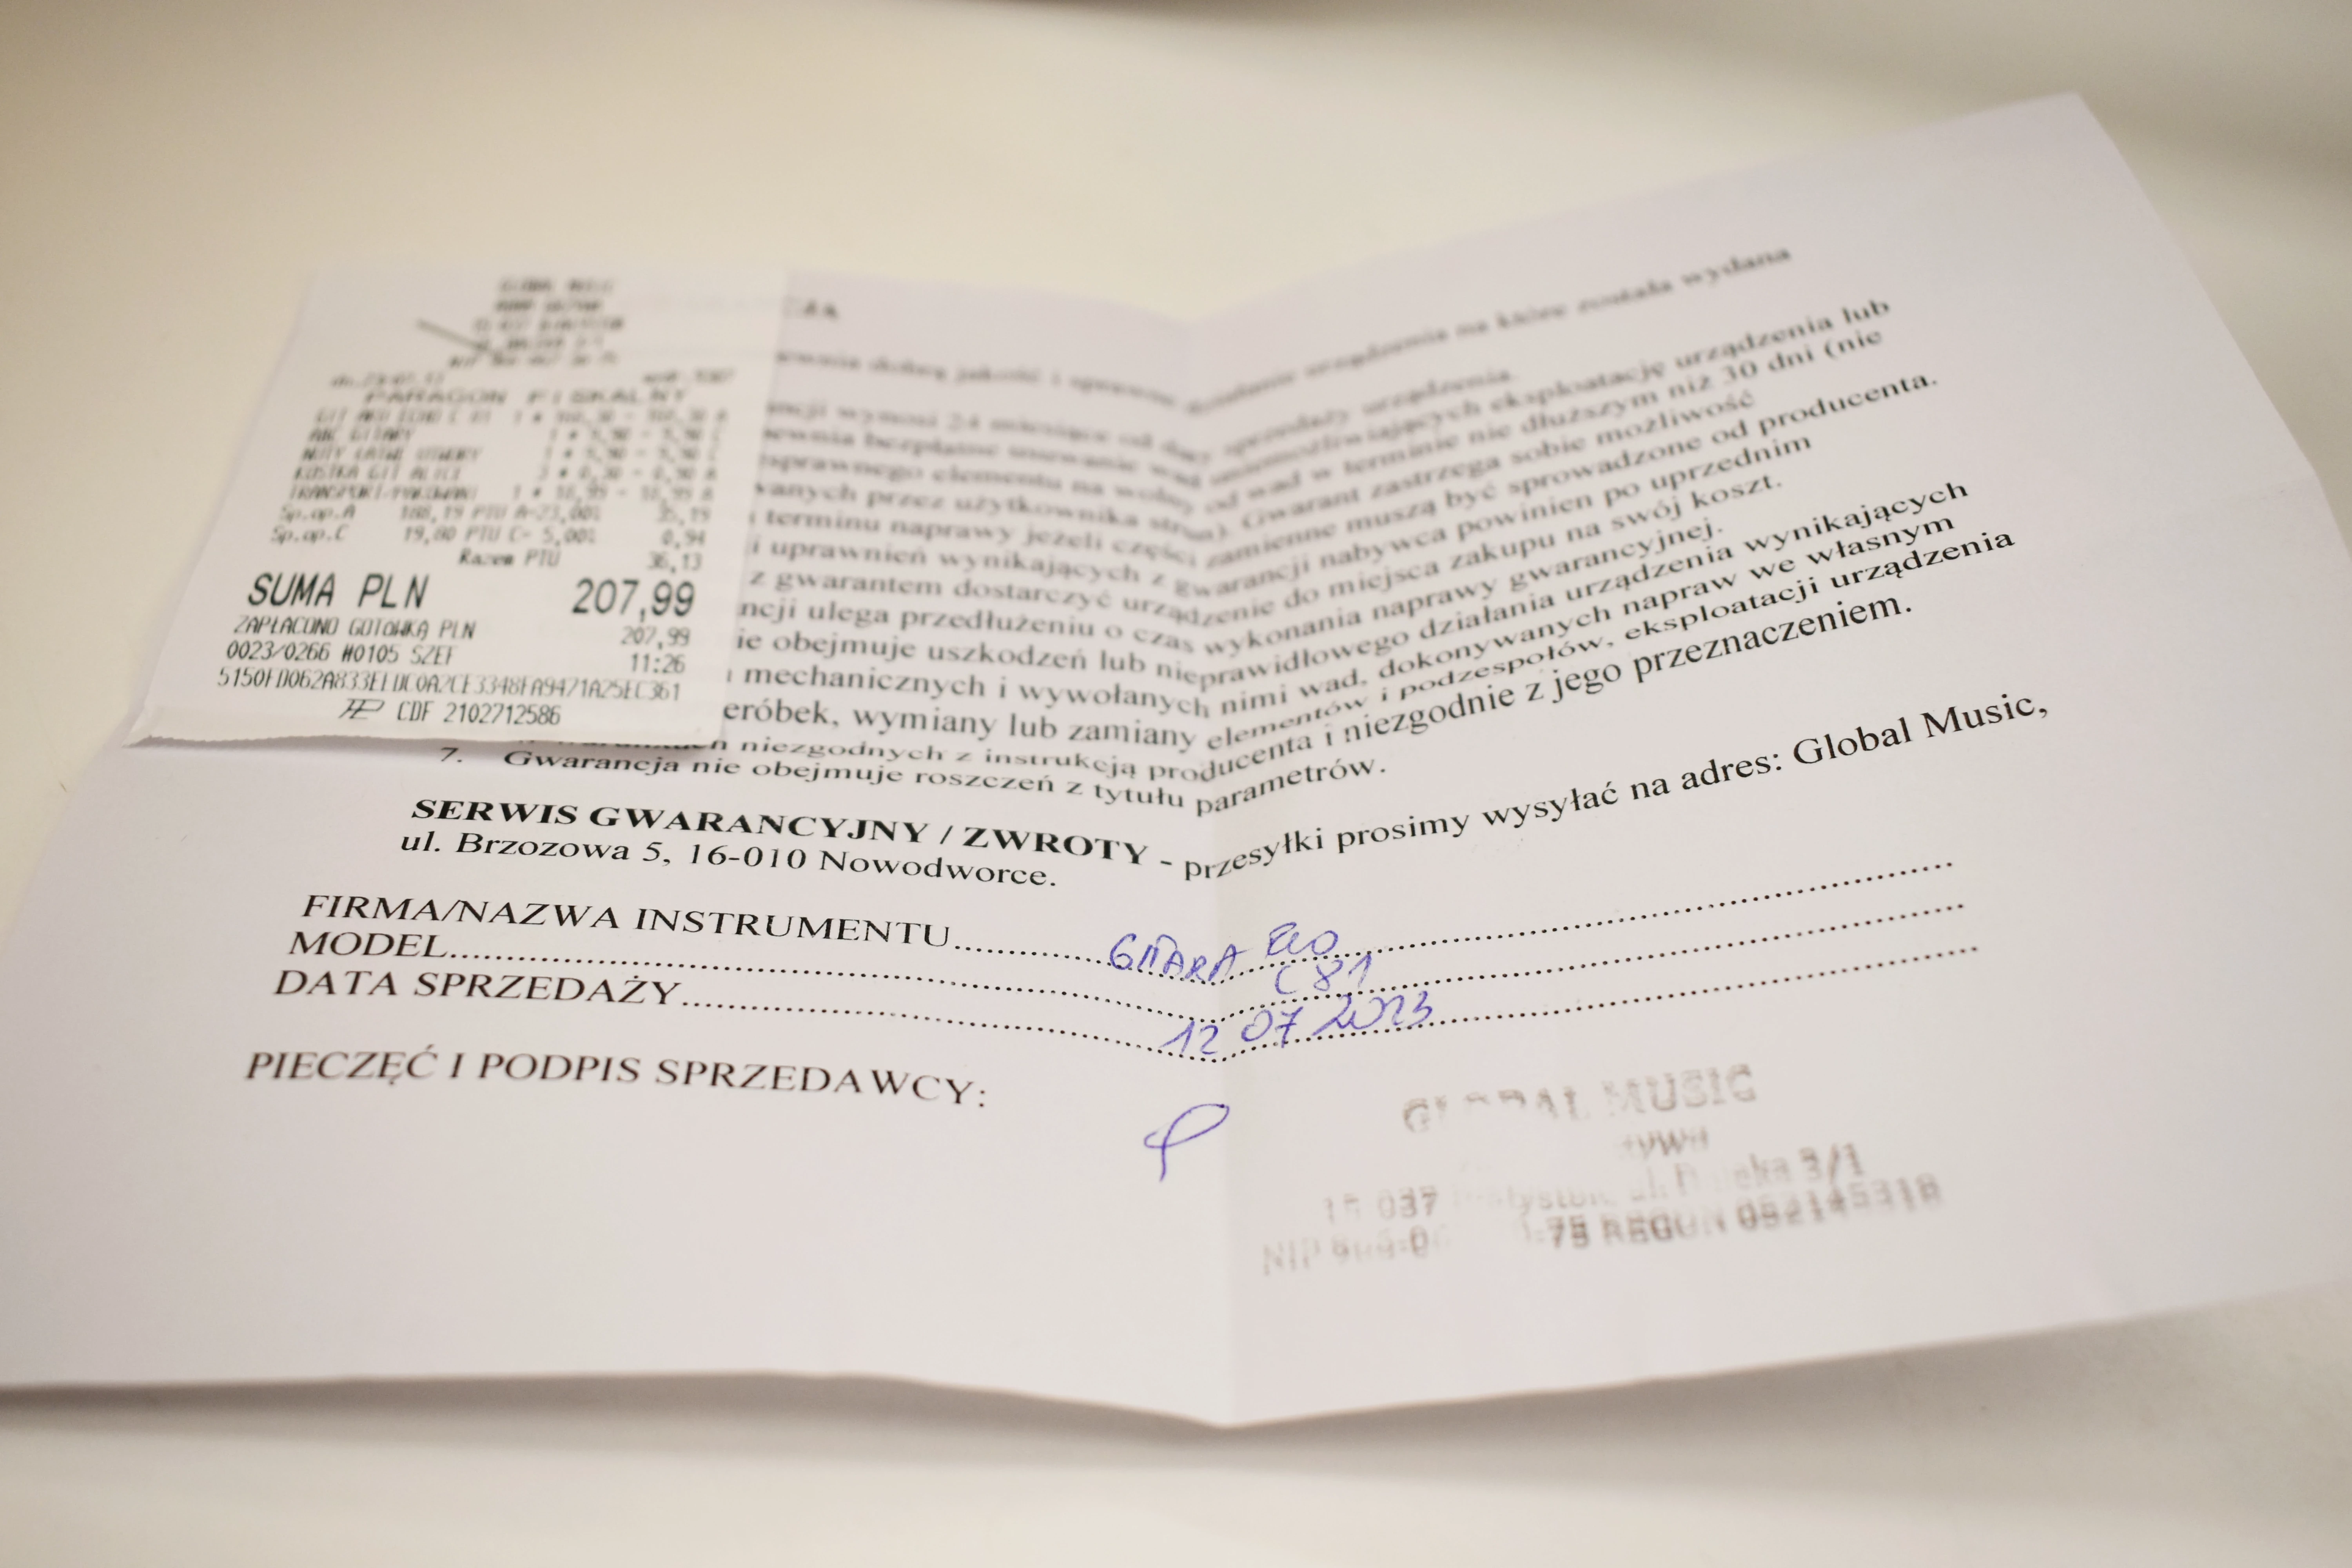 GLOBAL MUSIC
PARAGON FISKALNY
ABC GITARY
NUTY ŁATWE UTWORY
KOSTKA GIT ALICE
Sp.op.A 188,19 PTU A-23,00% 35,19
Sp.op.C 19,80 PTU C- 5,00% 0,94
Razem PTU 36,13
SUMA PLN 207,99
ZAPŁACONO GOTÓWKA PLN 207,99
0023/0266 #0105 SZEF 11:26
CDF 2102712586
działanie urządzenia na które została wydana
dobrą jakość i
sprzedaży urządzenia.
ncji wynosi 24 miesiące od daty
ewnia bezpłatne usuwanie wad uniemożliwiających eksploatację urządzenia lub
sprawnego elementu na wolny od wad w terminie nie dłuższym niż 30 dni (nie
wanych przez użytkownika strun). Gwarant zastrzega sobie możliwość
terminu naprawy jeżeli części zamienne muszą być sprowadzone od producenta.
i uprawnień wynikających z gwarancji nabywca powinien po uprzednim
z gwarantem dostarczyć urządzenie do miejsca zakupu na swój koszt.
ncji ulega przedłużeniu o czas wykonania naprawy gwarancyjnej.
ie obejmuje uszkodzeń lub nieprawidłowego działania urządzenia wynikających
mechanicznych i wywołanych nimi wad, dokonywanych napraw we własnym
eróbek, wymiany lub zamiany elementów i podzespołów, eksploatacji urządzenia
niezgodnych z instrukcją producenta i niezgodnie z jego przeznaczeniem.
7. Gwarancja nie obejmuje roszczeń z tytułu parametrów.
SERWIS GWARANCYJNY / ZWROTY - przesyłki prosimy wysyłać na adres: Global Music,
ul. Brzozowa 5, 16-010 Nowodworce.
FIRMA/NAZWA INSTRUMENTU GITARA
MODEL C81
DATA SPRZEDAŻY 12 07 2023
PIECZĘĆ I PODPIS SPRZEDAWCY:
GLOBAL MUSIC
037 3/1
NIP REGON